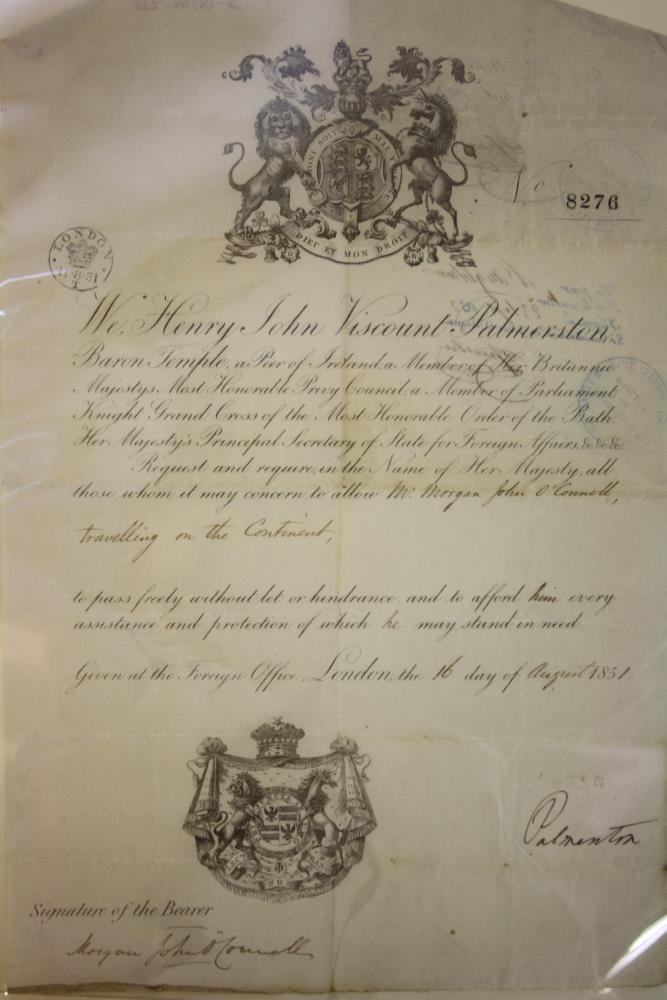 HONI SOIT QUI MAL
DIEU ET MON DROIT
No 8276
LONDON
We, Henry John Viscount Palmerston,
Baron Temple, a Peer of Ireland, a Member of Her Britannic
Majestys Most Honorable Privy Council, a Member of Parliament,
Knight Grand Cross of the Most Honorable Order of the Bath,
Her Majesty's Principal Secretary of State for Foreign Affairs, &c &c &c
Request and require, in the Name of Her Majesty, all
those whom it may concern to allow Mr. Morgan John O'Connell,
travelling on the Continent,
to pass freely without let or hindrance, and to afford him every
assistance and protection of which he may stand in need.
Given at the Foreign Office, London, the 16 day of August 1851
Palmerston
Signature of the Bearer
Morgan John O'Connell